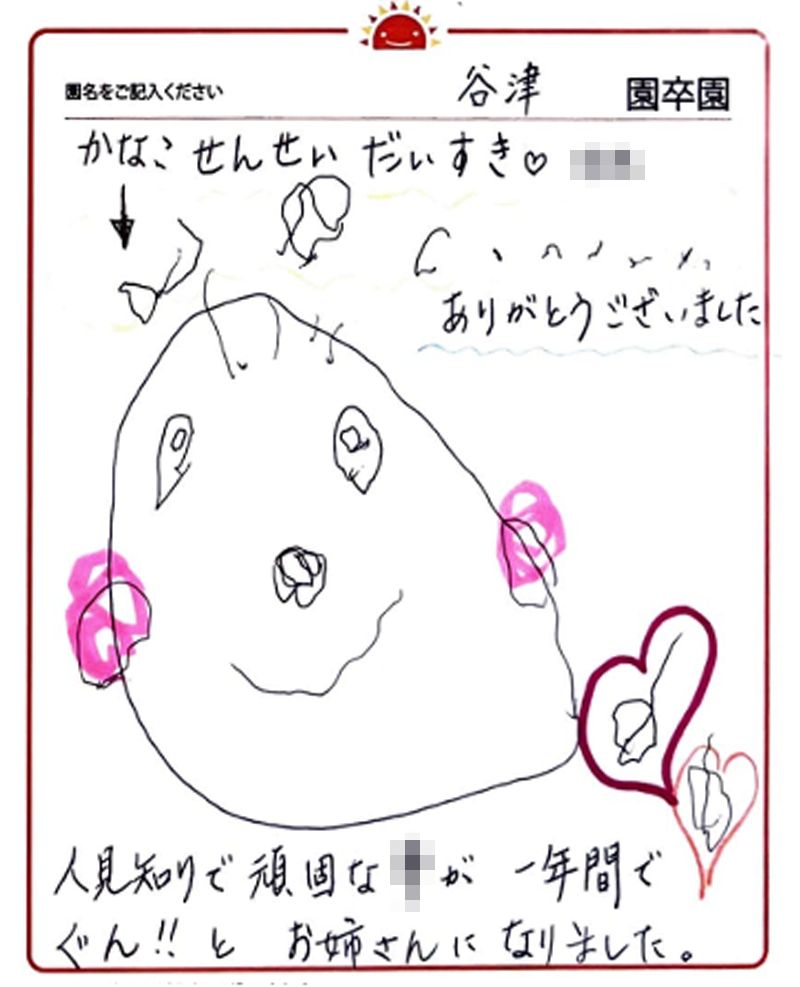 園名をご記入ください 谷津 園卒園
かなこ せんせい だいすき♡
ありがとうございました
人見知りで 頑固な が 一年間で
ぐん!! と お姉さんに なりました。